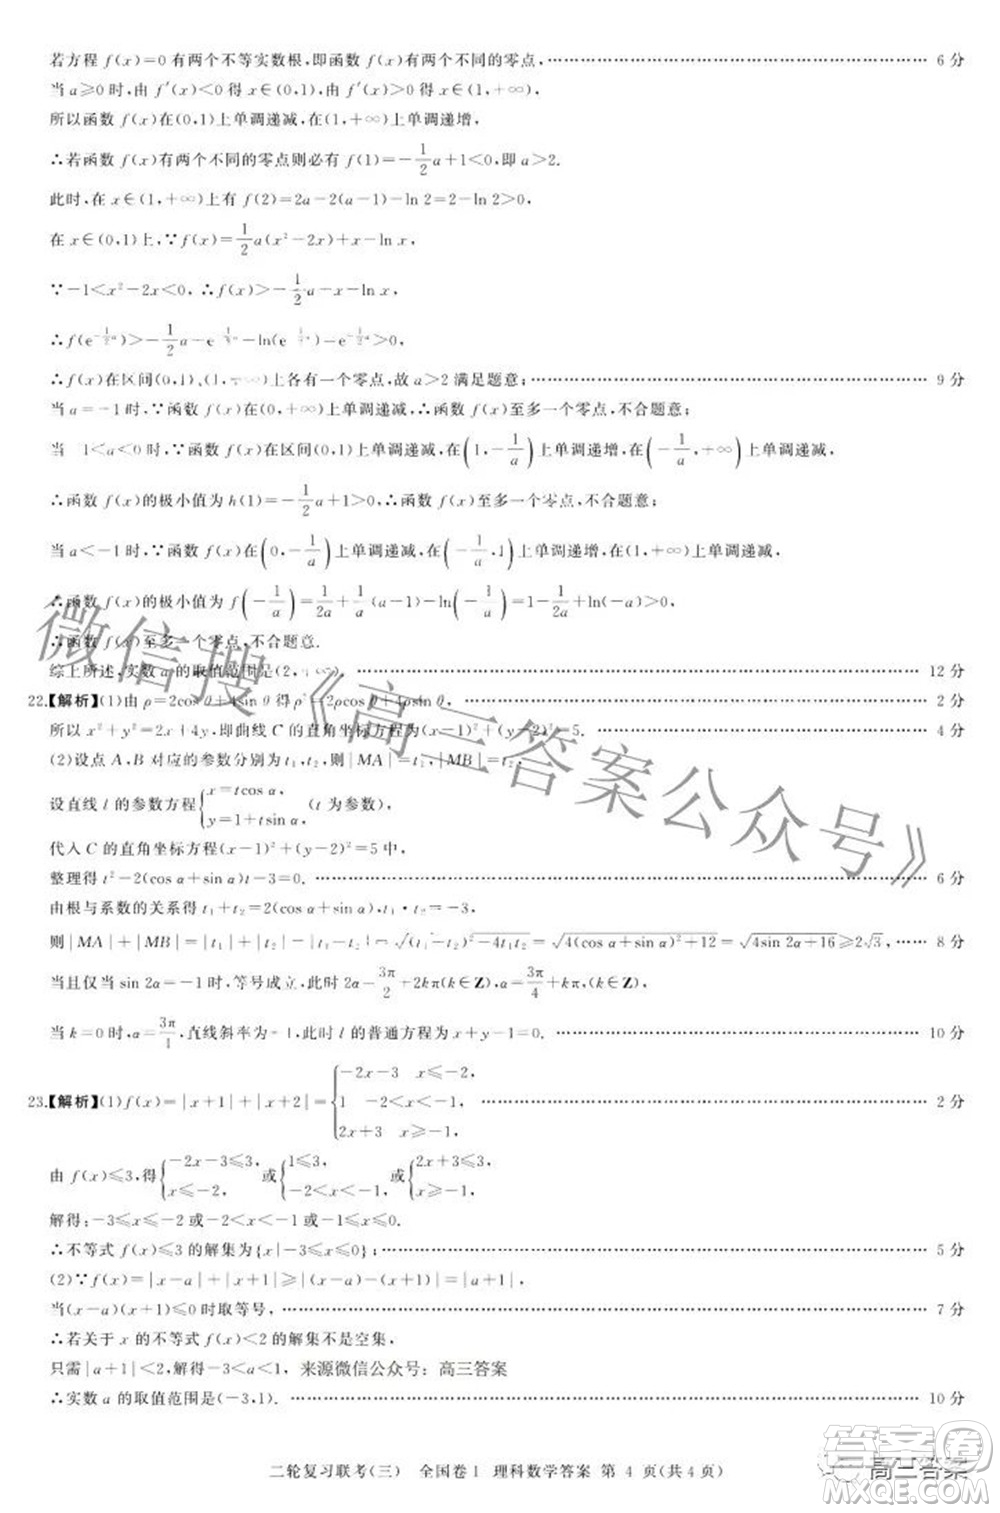 若方程 f(x)=0 有两个不等实数根,即函数 f(x)有两个不同的零点,…… 6 分
当 a≥0 时,由 f′(x)<0 得 x∈(0,1),由 f′(x)>0 得 x∈(1,+∞),
所以函数 f(x)在(0,1)上单调递减,在(1,+∞)上单调递增,
∴若函数 f(x)有两个不同的零点则必有 f(1)=-1/2a+1<0,即 a>2.
此时,在 x∈(1,+∞)上有 f(2)=2a-2(a-1)-ln 2=2-ln 2>0,
在 x∈(0,1)上,∵f(x)=1/2a(x²-2x)+x-ln x,
∵-1<x²-2x<0,∴f(x)>-1/2a+x-ln x,
∴f(e^(-1/2a))>-1/2a+e -ln(e )>0,
∴f(x)在区间(0,1),(1, )上各有一个零点,故 a>2 满足题意;…… 9 分
当 a=-1 时,∵函数 f(x)在(0,+∞)上单调递减,∴函数 f(x)至多一个零点,不合题意;
当 1<a<0 时,∵函数 f(x)在区间(0,1)上单调递减,在(1,-1/a)上单调递增,在(-1/a,+∞)上单调递减,
∴函数 f(x)的极小值为 h(1)=-1/2a+1>0,∴函数 f(x)至多一个零点,不合题意;
当 a<-1 时,∵函数 f(x)在(0,-1/a)上单调递减,在(-1/a,1)上单调递增,在(1,+∞)上单调递减,
∴函数 f(x)的极小值为 f(-1/a)=1/2a+1/a(a-1)-ln(-1/a)=1-1/2a+ln(-a)>0,
∴函数 f(x)至多一个零点,不合题意.
综上所述,实数 a 的取值范围是(2, ). …… 12 分
22.【解析】(1)由 ρ=2cos θ+4sin θ 得 ρ²=2ρcos θ+4ρsin θ, …… 2 分
所以 x²+y²=2x+4y,即曲线 C 的直角坐标方程为(x-1)²+(y-2)²=5. …… 4 分
(2)设点 A,B 对应的参数分别为 t₁,t₂,则|MA|=t₁,|MB|=t₂,
设直线 l 的参数方程{x=tcos α, y=1+tsin α (t 为参数),
代入 C 的直角坐标方程(x-1)²+(y-2)²=5 中,
整理得 t²-2(cos α+sin α)t-3=0. …… 6 分
由根与系数的关系得 t₁+t₂=2(cos α+sin α),t =-3,
则|MA|+|MB|=|t₁|+|t₂|= =√(t )²-4t₁t₂=√4(cos α+sin α)²+12=√4sin 2α+16≥2√3,…… 8 分
当且仅当 sin 2α=-1 时,等号成立,此时 2α=3π/2+2kπ(k∈Z),α=3π/4+kπ(k∈Z),
当 k=0 时,α=3π/4,直线斜率为-1,此时 l 的普通方程为 x+y-1=0. …… 10 分
23.【解析】(1)f(x)=|x+1|+|x+2|={-2x-3 x≤-2, 1 -2<x<-1, 2x+3 x≥-1, …… 2 分
由 f(x)≤3,得{-2x-3≤3, x≤-2, 或{1≤3, -2<x<-1, 或{2x+3≤3, x≥-1,
解得:-3≤x≤-2 或-2<x<-1 或-1≤x≤0.
∴不等式 f(x)≤3 的解集为{x|-3≤x≤0};…… 5 分
(2)∵f(x)=|x-a|+|x+1|≥|(x-a)-(x+1)|=|a+1|,
当(x-a)(x+1)≤0 时取等号,…… 7 分
∴若关于 x 的不等式 f(x)<2 的解集不是空集,
只需|a+1|<2,解得-3<a<1, 来源微信公众号: 高三答案
∴实数 a 的取值范围是(-3,1). …… 10 分
微信搜《高三答案公众号》
二轮复习联考(三) 全国卷1 理科数学答案 第 4 页(共4页)
高三答案
答案圈
MXQE.COM